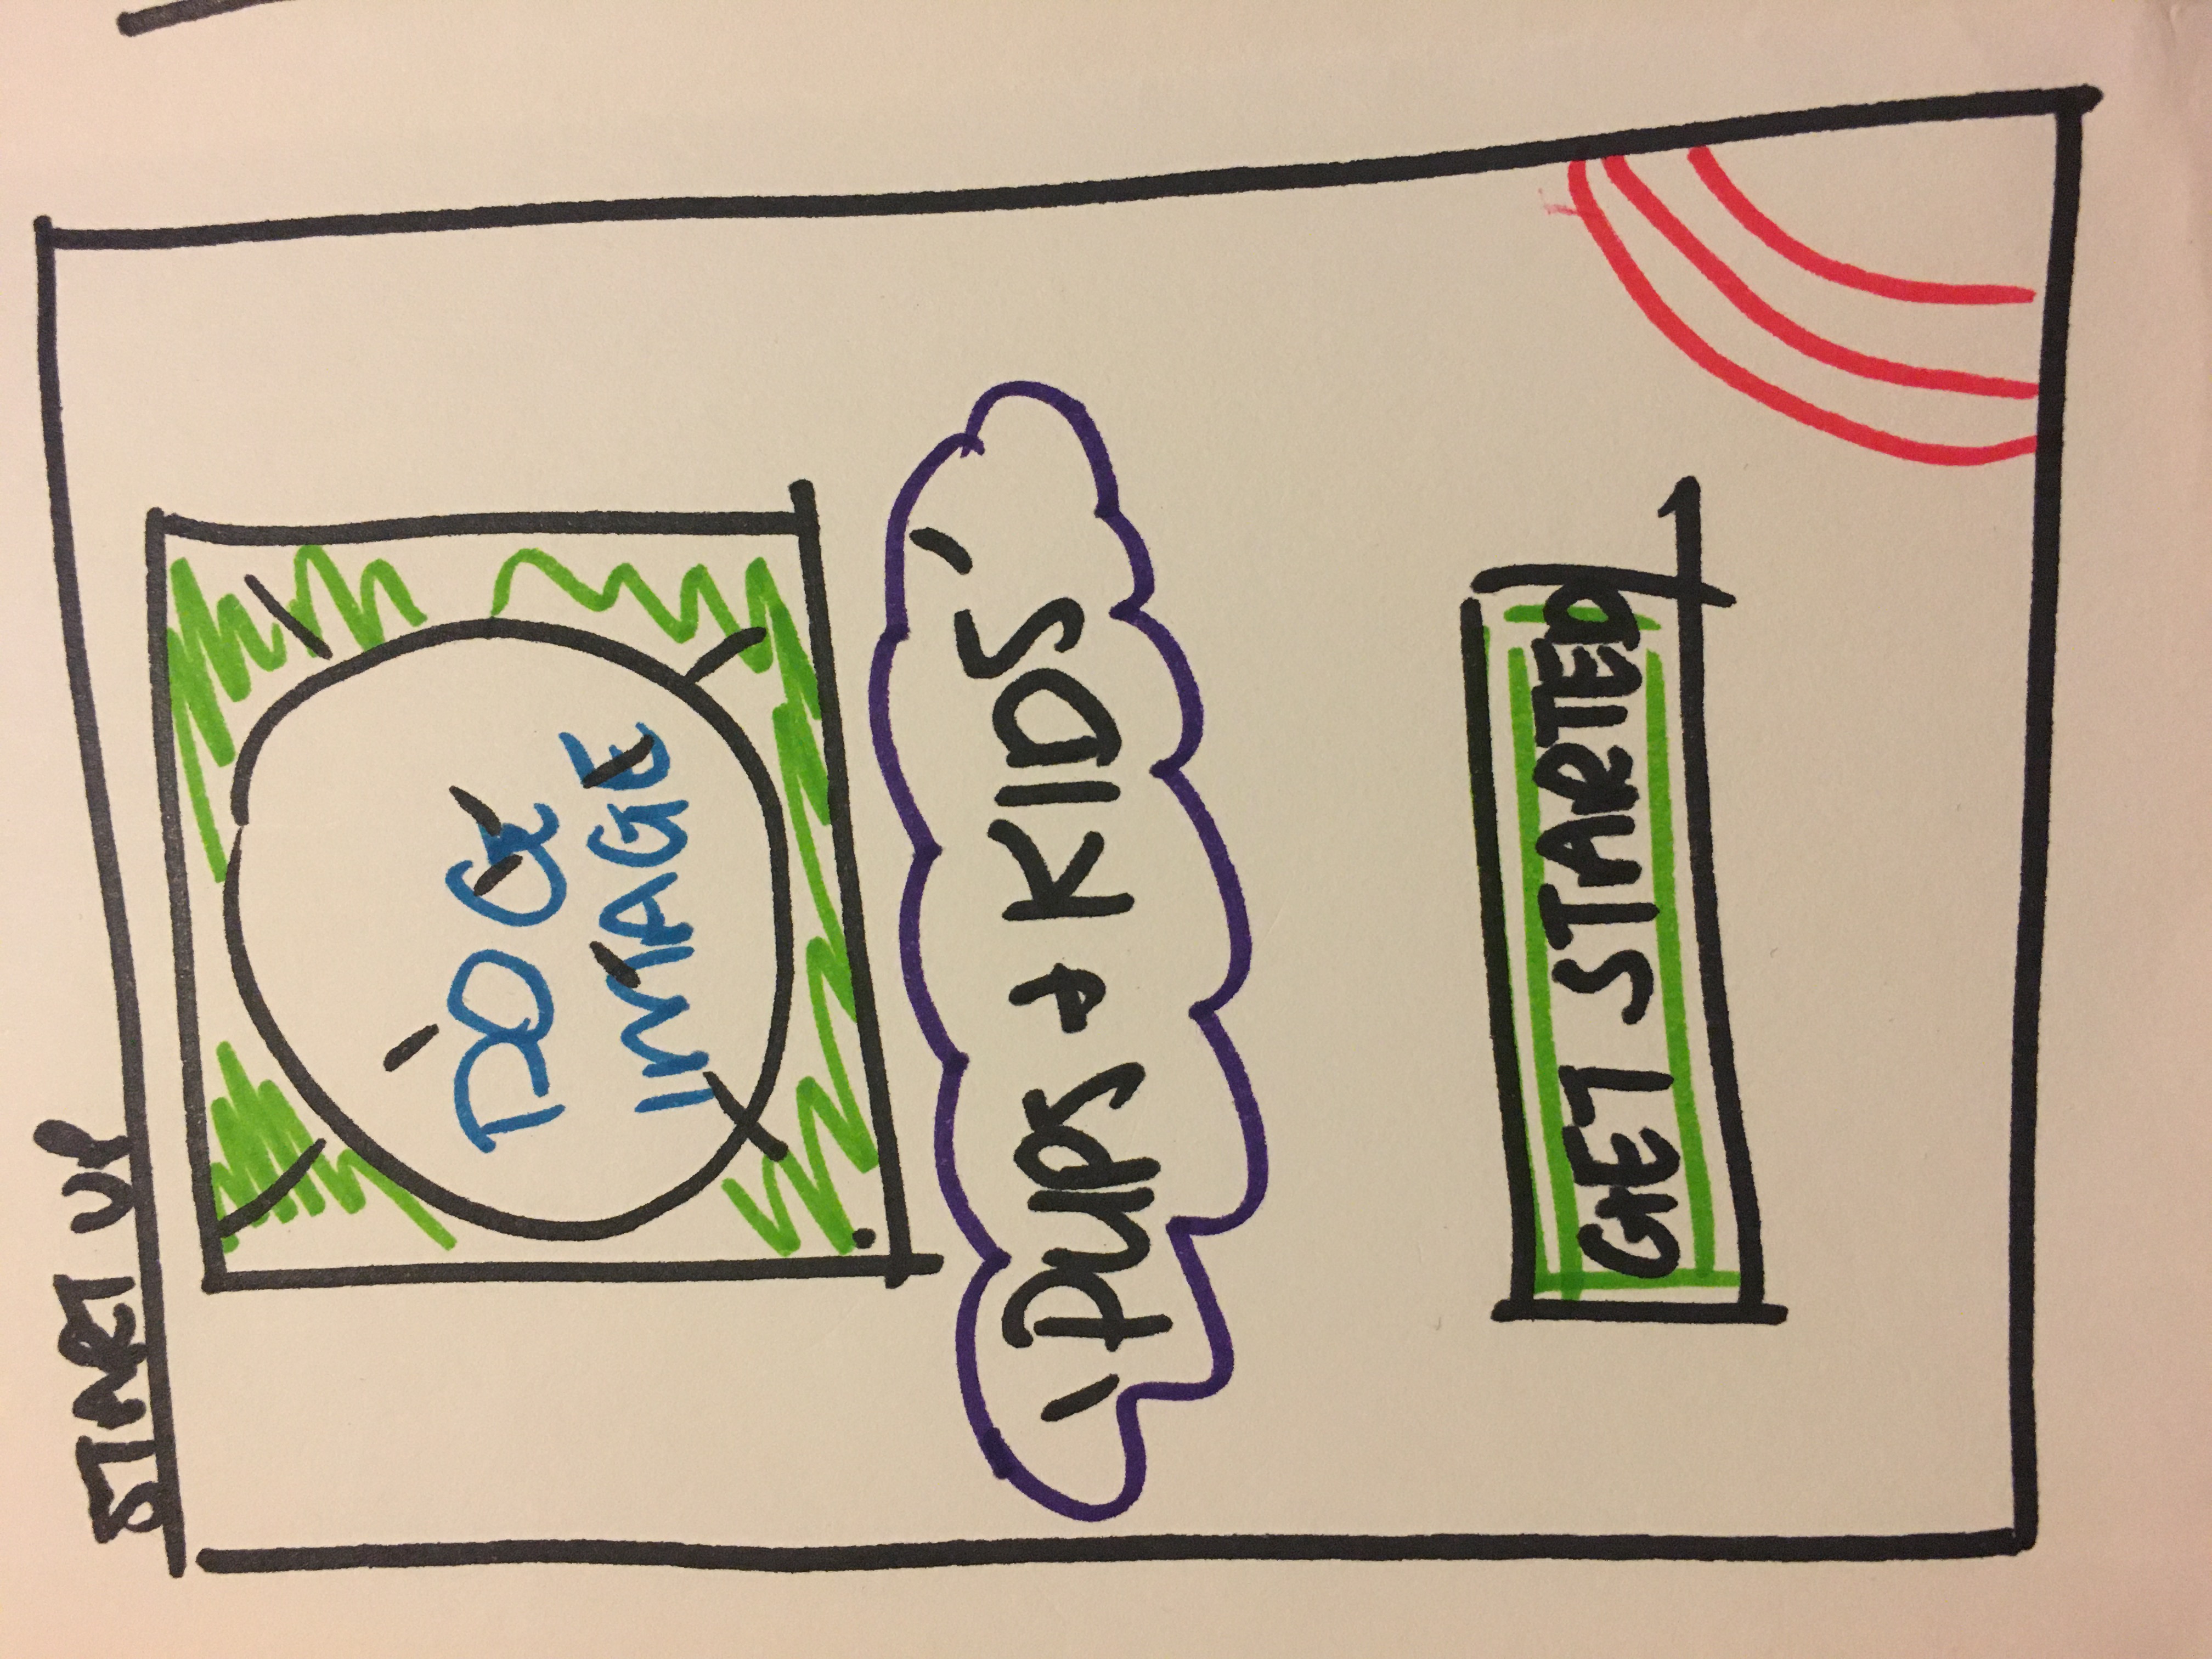 START UP
DOG
IMAGE
'PUPS + KIDS'
GET STARTED